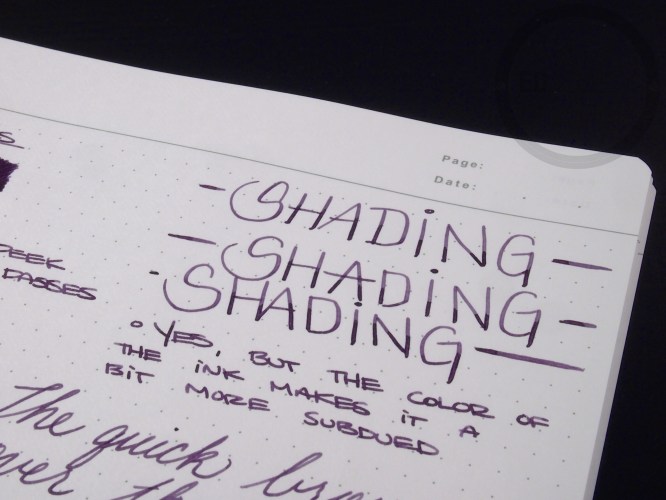 Page:
Date:
- SHADING -
- SHADING -
- SHADING -
PEEK
PASSES
• YES, BUT THE COLOR OF
THE INK MAKES IT A
BIT MORE SUBDUED
The quick
over